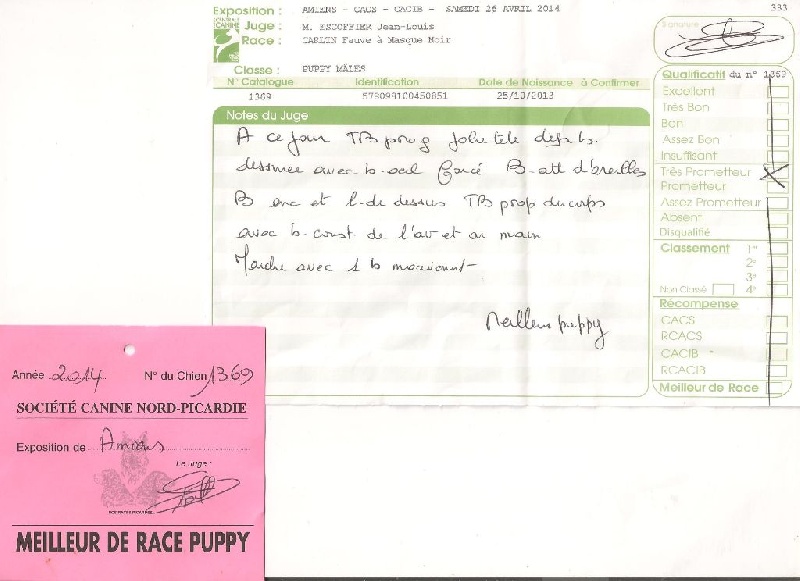 Exposition : AMIENS - CACS - CACIB - SAMEDI 26 AVRIL 2014
333
CENTRALE CANINE
Juge : M. ESCOFFIER Jean-Louis
Race : CARLIN Fauve à Masque Noir
Classe : PUPPY MÂLES
N° Catalogue Identification Date de Naissance à Confirmer
1369 25/10/2013
Notes du Juge
A ce jour TB prog jolie tête déjà b.
dessinée avec b. oeil foncé B. att d'oreilles
B enc et l. de dessus TB prop du corps
avec b. const de l'av et au main
Marche avec 1 b mouvement
Meilleur puppy
Signature
Qualificatif du n° 1369
Excellent
Très Bon
Bon
Assez Bon
Insuffisant
Très Prometteur X
Prometteur
Assez Prometteur
Absent
Disqualifié
Classement 1er
2e
3e
Non Classé 4e
Récompense
CACS
RCACS
CACIB
RCACIB
Meilleur de Race
Année 2014 N° du Chien 1369
SOCIÉTÉ CANINE NORD-PICARDIE
Exposition de Amiens
Le Juge :
MEILLEUR DE RACE PUPPY